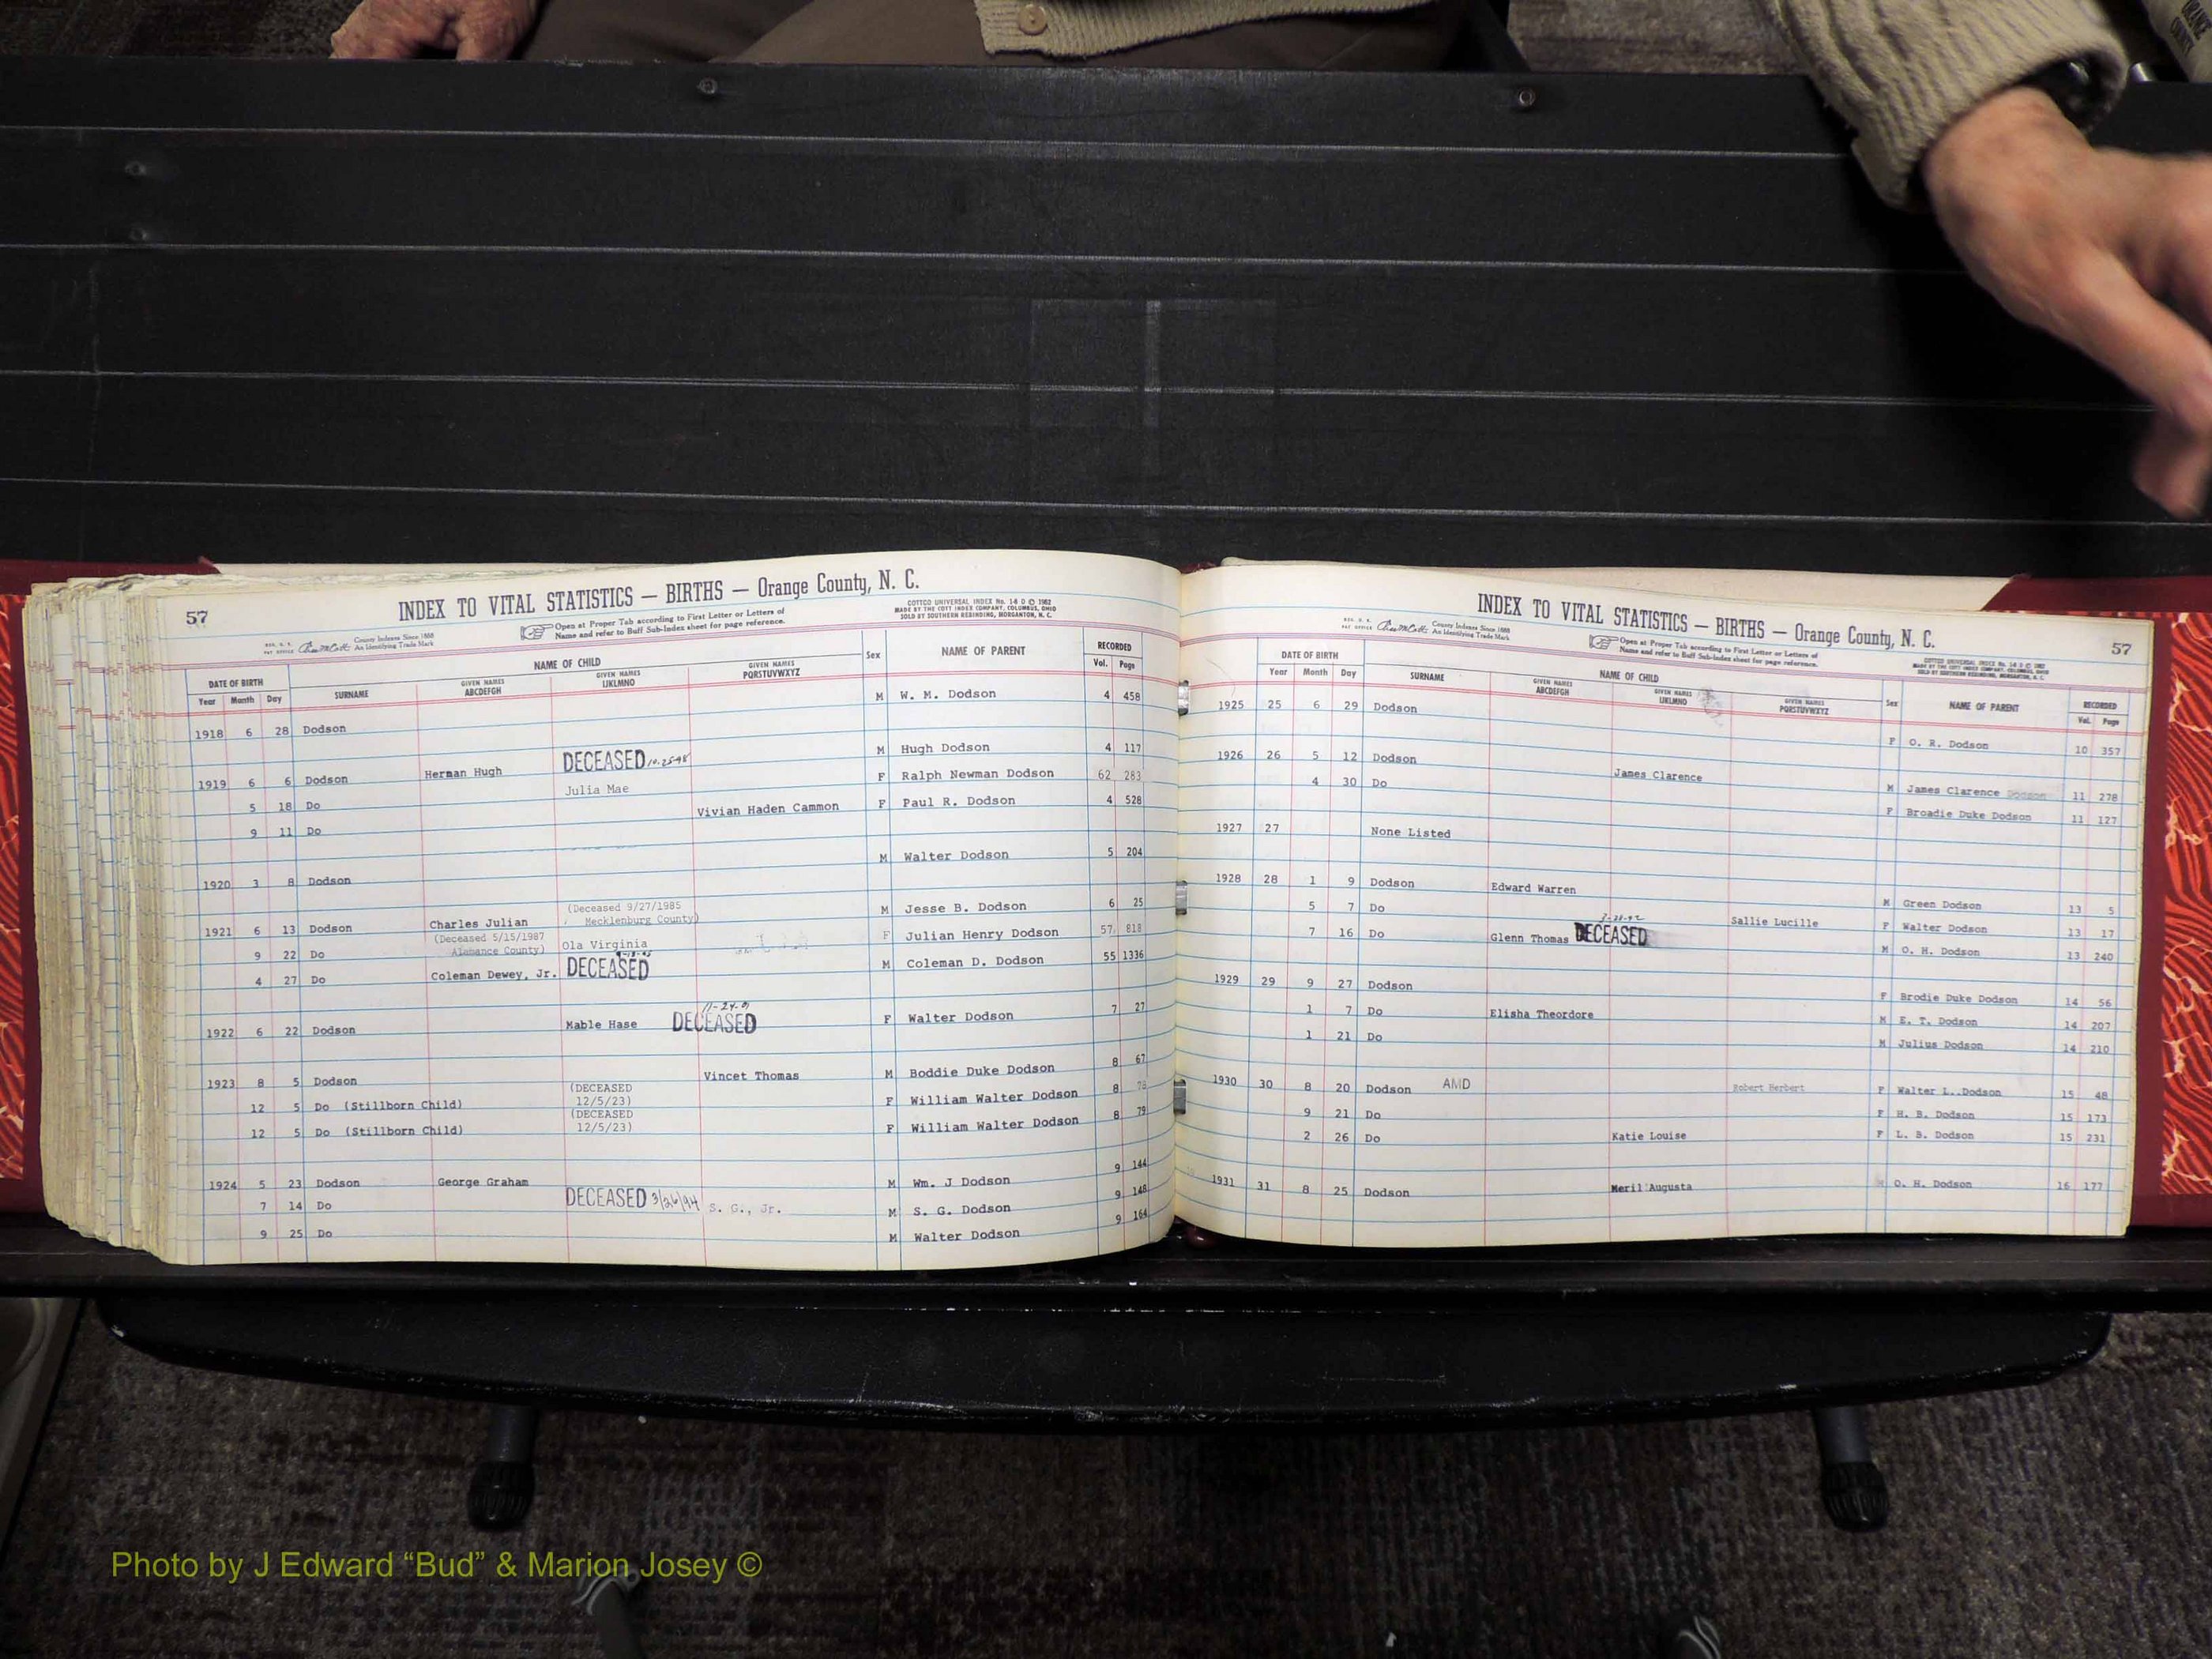 57
INDEX TO VITAL STATISTICS — BIRTHS — Orange County, N. C.
Open at Proper Tab according to First Letter or Letters of
Name and refer to Buff Sub-Index sheet for page reference.
COTTCO UNIVERSAL INDEX No. 1-8 D © 1962
MADE BY THE COTT INDEX COMPANY, COLUMBUS, OHIO
SOLD BY SOUTHERN REBINDING, MORGANTON, N. C.
County Indexes Since 1888
An Identifying Trade Mark
DATE OF BIRTH NAME OF CHILD Sex NAME OF PARENT RECORDED
Year Month Day SURNAME GIVEN NAMES ABCDEFGH GIVEN NAMES IJKLMNO GIVEN NAMES PQRSTUVWXYZ Vol. Page
1918 6 28 Dodson M W. M. Dodson 4 458
1919 6 6 Dodson Herman Hugh DECEASED 10-25-98 M Hugh Dodson 4 117
5 18 Do Julia Mae F Ralph Newman Dodson 62 283
9 11 Do Vivian Haden Cammon F Paul R. Dodson 4 528
1920 3 8 Dodson M Walter Dodson 5 204
(Deceased 9/27/1985
Mecklenburg County)
1921 6 13 Dodson Charles Julian M Jesse B. Dodson 6 25
(Deceased 5/15/1987
Alamance County)
9 22 Do Ola Virginia F Julian Henry Dodson 57 818
4 27 Do Coleman Dewey, Jr. DECEASED M Coleman D. Dodson 55 1336
1922 6 22 Dodson Mable Hase DECEASED F Walter Dodson 7 27
1923 8 5 Dodson Vincet Thomas M Boddie Duke Dodson 8 67
12 5 Do (Stillborn Child) (DECEASED 12/5/23) F William Walter Dodson 8 78
12 5 Do (Stillborn Child) (DECEASED 12/5/23) F William Walter Dodson 8 79
1924 5 23 Dodson George Graham M Wm. J Dodson 9 144
7 14 Do DECEASED 3/26/94 S. G., Jr. M S. G. Dodson 9 148
9 25 Do M Walter Dodson 9 164
57
INDEX TO VITAL STATISTICS — BIRTHS — Orange County, N. C.
Open at Proper Tab according to First Letter or Letters of
Name and refer to Buff Sub-Index sheet for page reference.
County Indexes Since 1888
An Identifying Trade Mark
DATE OF BIRTH NAME OF CHILD Sex NAME OF PARENT RECORDED
Year Month Day SURNAME GIVEN NAMES ABCDEFGH GIVEN NAMES IJKLMNO GIVEN NAMES PQRSTUVWXYZ Vol. Page
1925 25 6 29 Dodson F O. R. Dodson 10 357
1926 26 5 12 Dodson James Clarence M James Clarence Dodson 11 278
4 30 Do F Broadie Duke Dodson 11 127
1927 27 None Listed
1928 28 1 9 Dodson Edward Warren M Green Dodson 13 5
5 7 Do Sallie Lucille F Walter Dodson 13 17
7 16 Do Glenn Thomas DECEASED M O. H. Dodson 13 240
1929 29 9 27 Dodson F Brodie Duke Dodson 14 56
1 7 Do Elisha Theordore M E. T. Dodson 14 207
1 21 Do M Julius Dodson 14 210
1930 30 8 20 Dodson AMD Robert Herbert F Walter L. Dodson 15 48
9 21 Do F H. B. Dodson 15 173
2 26 Do Katie Louise F L. B. Dodson 15 231
1931 31 8 25 Dodson Meril Augusta M O. H. Dodson 16 177
Photo by J Edward “Bud” & Marion Josey ©